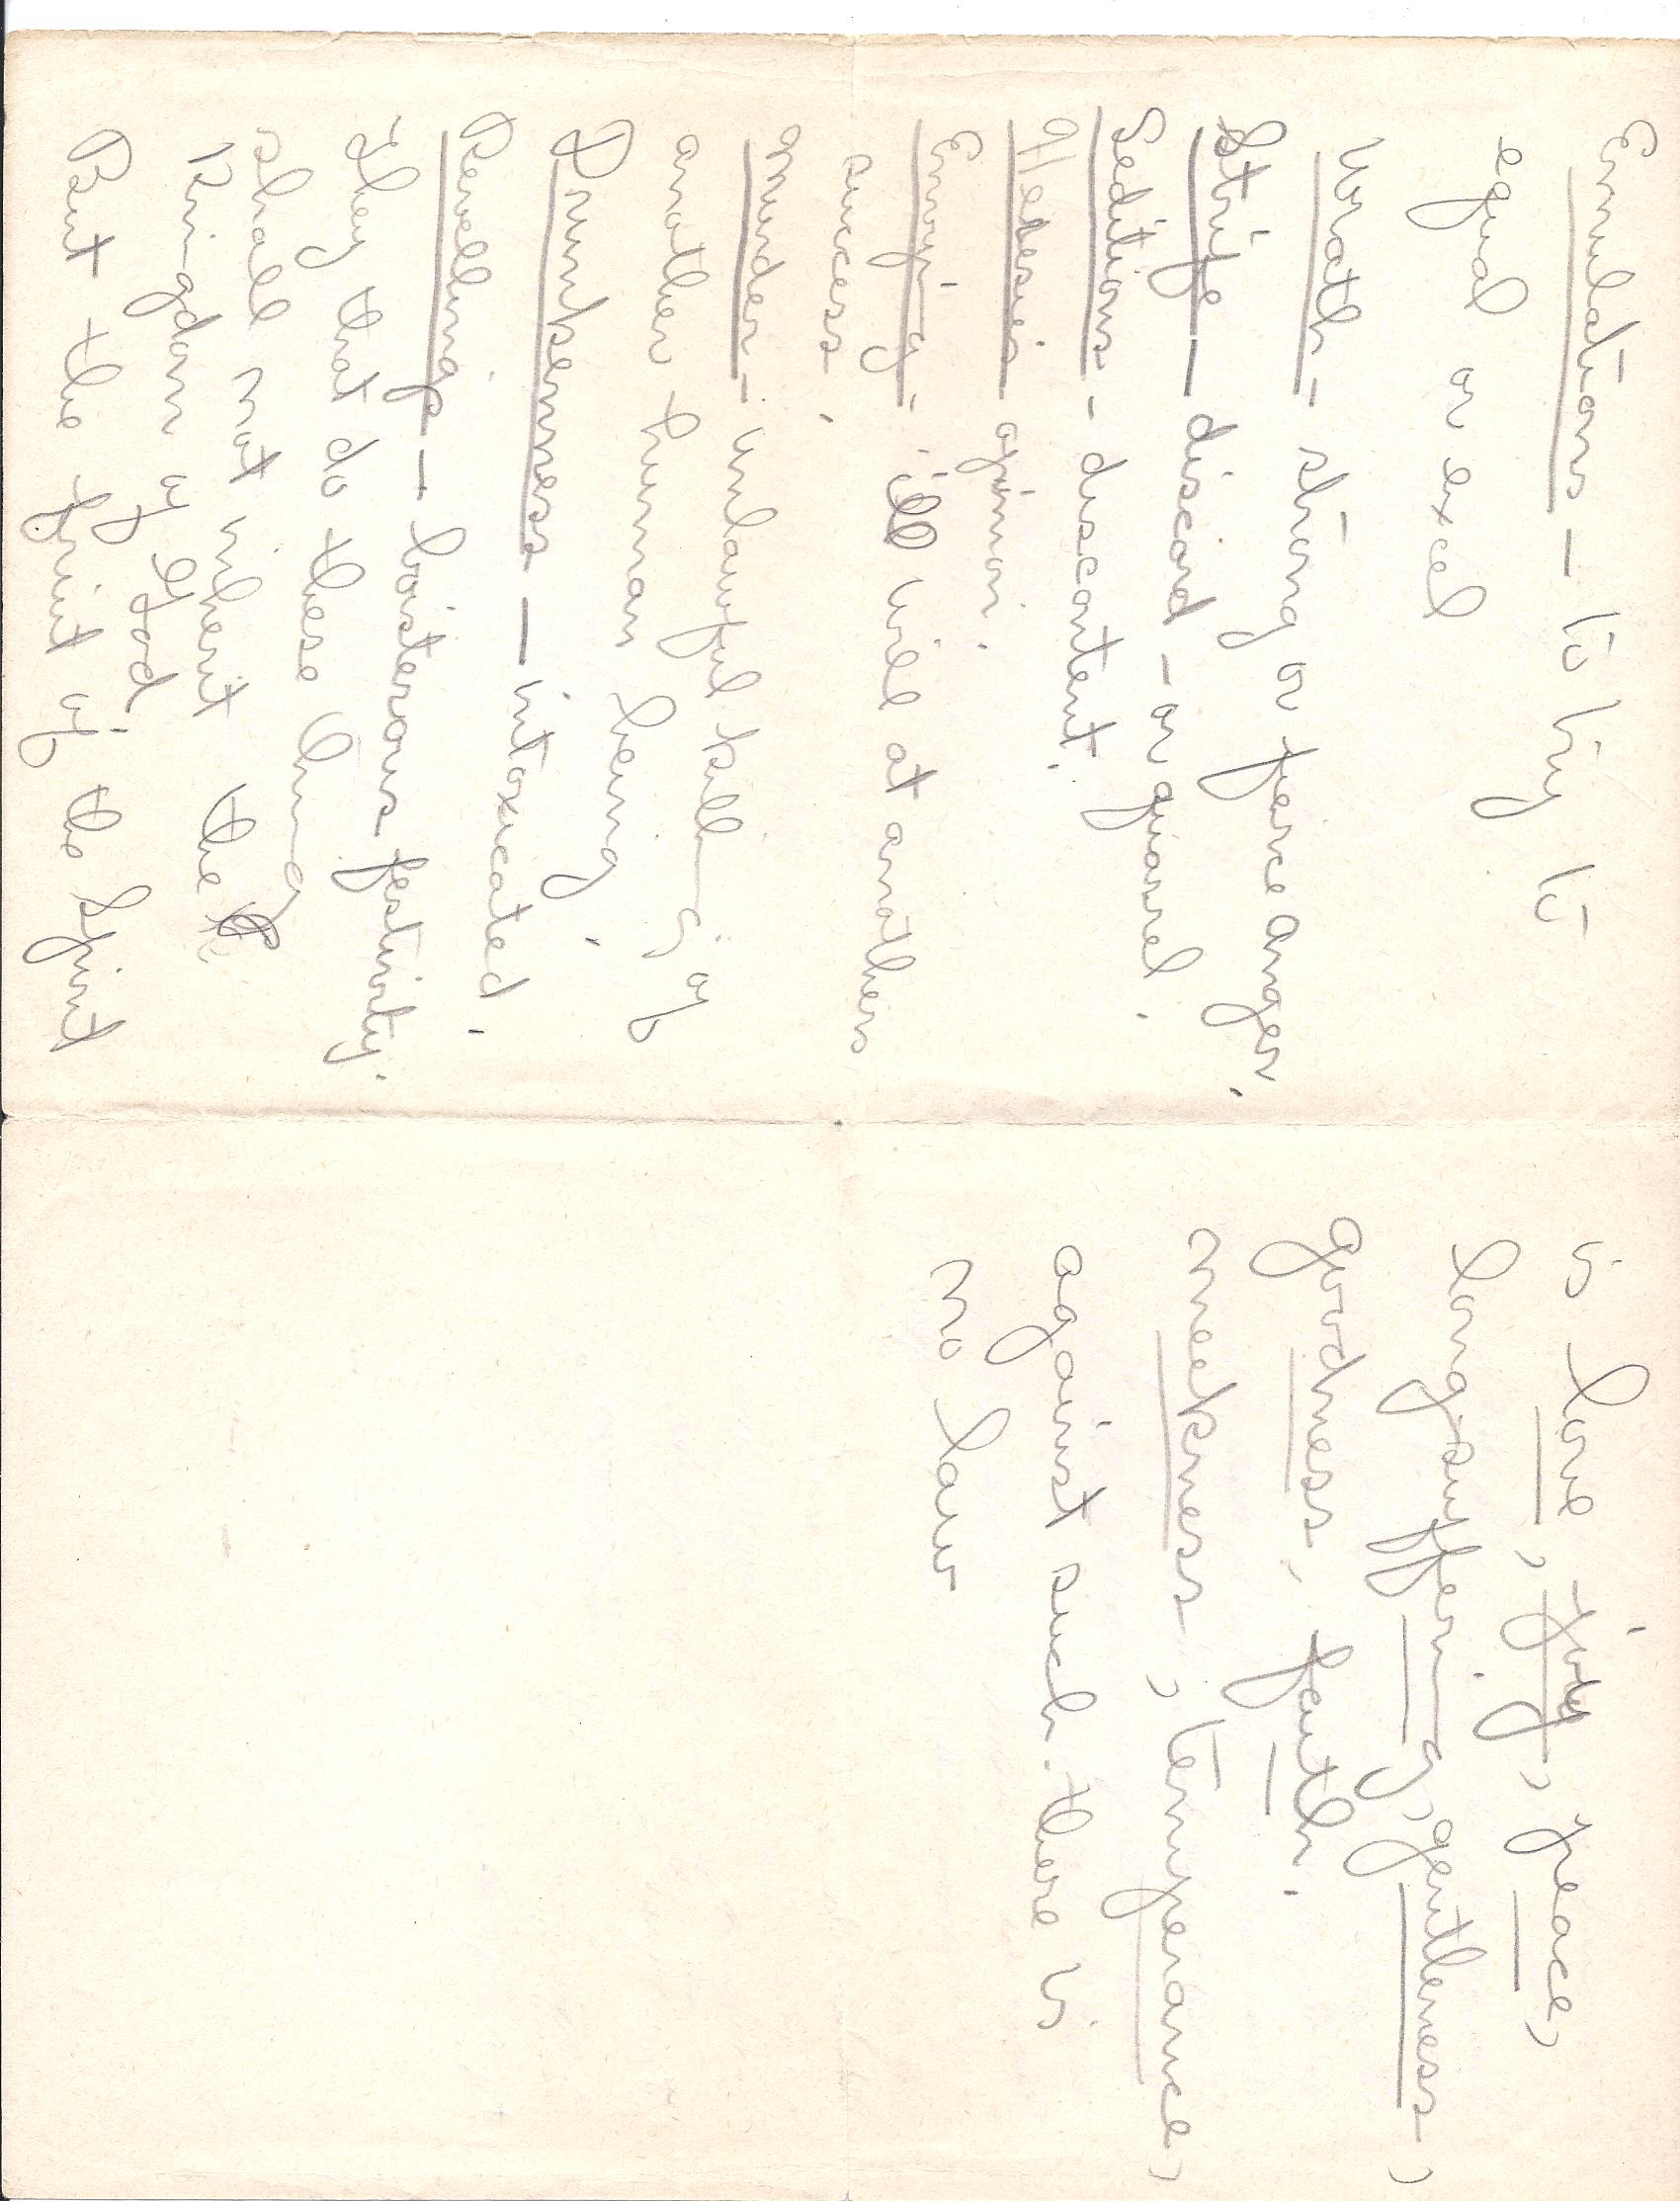 Emulations - to try to
equal or excel
Wrath - strong or ferce anger.
Strife - discord - or quarrel.
Seditions - discontent.
Heresies opinion.
Envying - ill will at anothers
success.
Murder - unlawful killing of
another human being.
Drunkenness - intoxicated.
Revellings - boisterous festivity.
They that do these thing
shall not inherit the
Kingdom of God.
But the fruit of the Spirit
is Love, joy, peace,
Longsuffering, gentleness,
goodness, faith.
meekness, temperance,
against such there is
no law